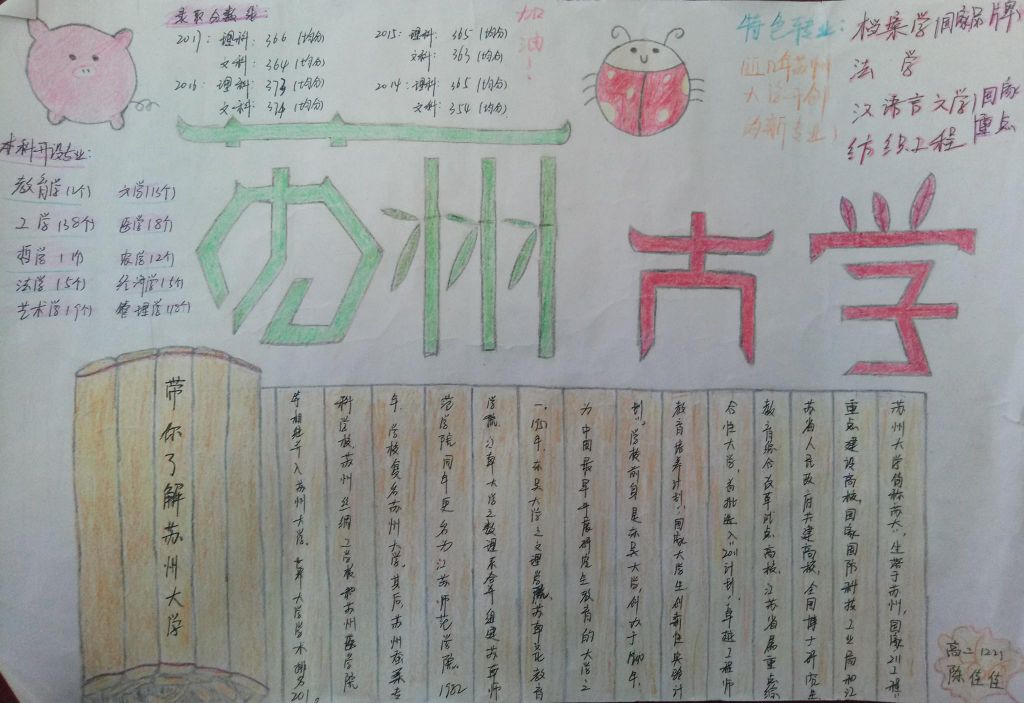 录取分数线:
2017: 理科: 366 (均分)
文科: 364 (均分)
2016: 理科: 373 (均分)
文科: 374 (均分)
2015: 理科: 365 (均分)
文科: 363 (均分)
2014: 理科: 365 (均分)
文科: 354 (均分)
加油!
特色专业: 档案学(国家品牌)
法学
汉语言文学(国家重点
纺织工程
近几年苏州
大学开创
的新专业)
本科开设专业:
教育学(2个) 文学(15个)
工学(38个) 医学(8个)
哲学1个 农学(2个)
法学(5个) 经济学(5个)
艺术学(9个) 管理学(18个)
苏州大学
带你了解苏州大学
苏州大学简称苏大,坐落于苏州,国家211工程
重点建设高校,国家国防科技工业局和江
苏省人民政府共建高校,全国博士研究生
教育综合改革试点高校,江苏省属重点综
合性大学,首批进入"2011计划",卓越工程师
教育培养计划,国家大学生创新性实验计
划",学校前身是东吴大学,创办于1900年.
为中国最早开展研究生教育的大学之
一,1952年,东吴大学之文理学院,苏南文化教育
学院,江南大学之数理系合并组建苏南师
范学院,同年更名为江苏师范学院.1982
年,学校复名苏州大学,其后,苏州蚕桑专
科学校,苏州丝绸工学院和苏州医学院
等相继并入苏州大学.
高二1221
陈佳佳